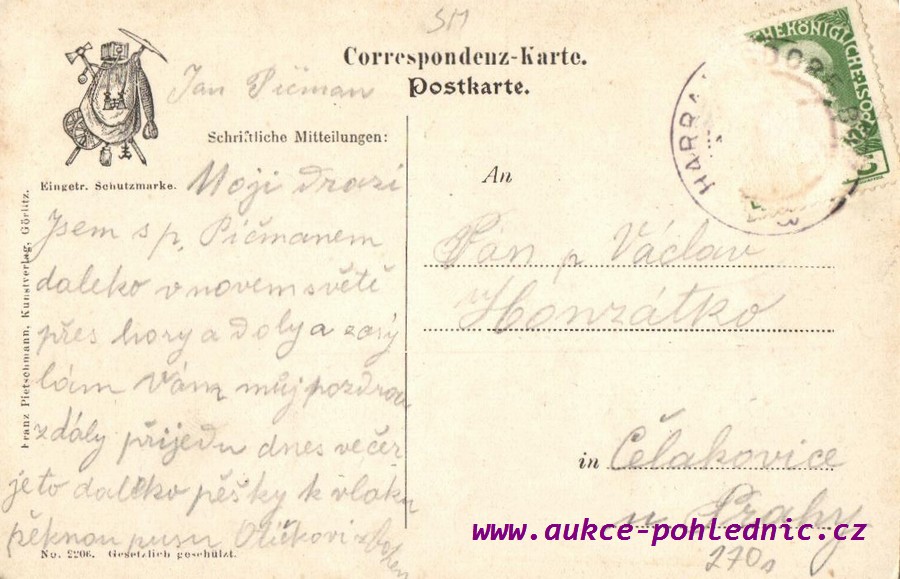 SM
Correspondenz-Karte.
Postkarte.
Jan Pičman
Schriftliche Mitteilungen:
Eingetr. Schutzmarke.
Franz Pietschmann, Kunstverlag, Görlitz.
Moji drazí
Jsem s p. Pičmanem
daleko v novem světě
přes hory a doly a zasý
lám Vám můj pozdrav
z dály přijedu dnes večer
je to daleko pěšky k vlaku
pěknou pusu Otíčkovi
No. 2206. Gesetzlich geschützt.
An
Pán p Václav
Honzátko
in Čelakovice
u Prahy
270
HARRA
www.aukce-pohlednic.cz